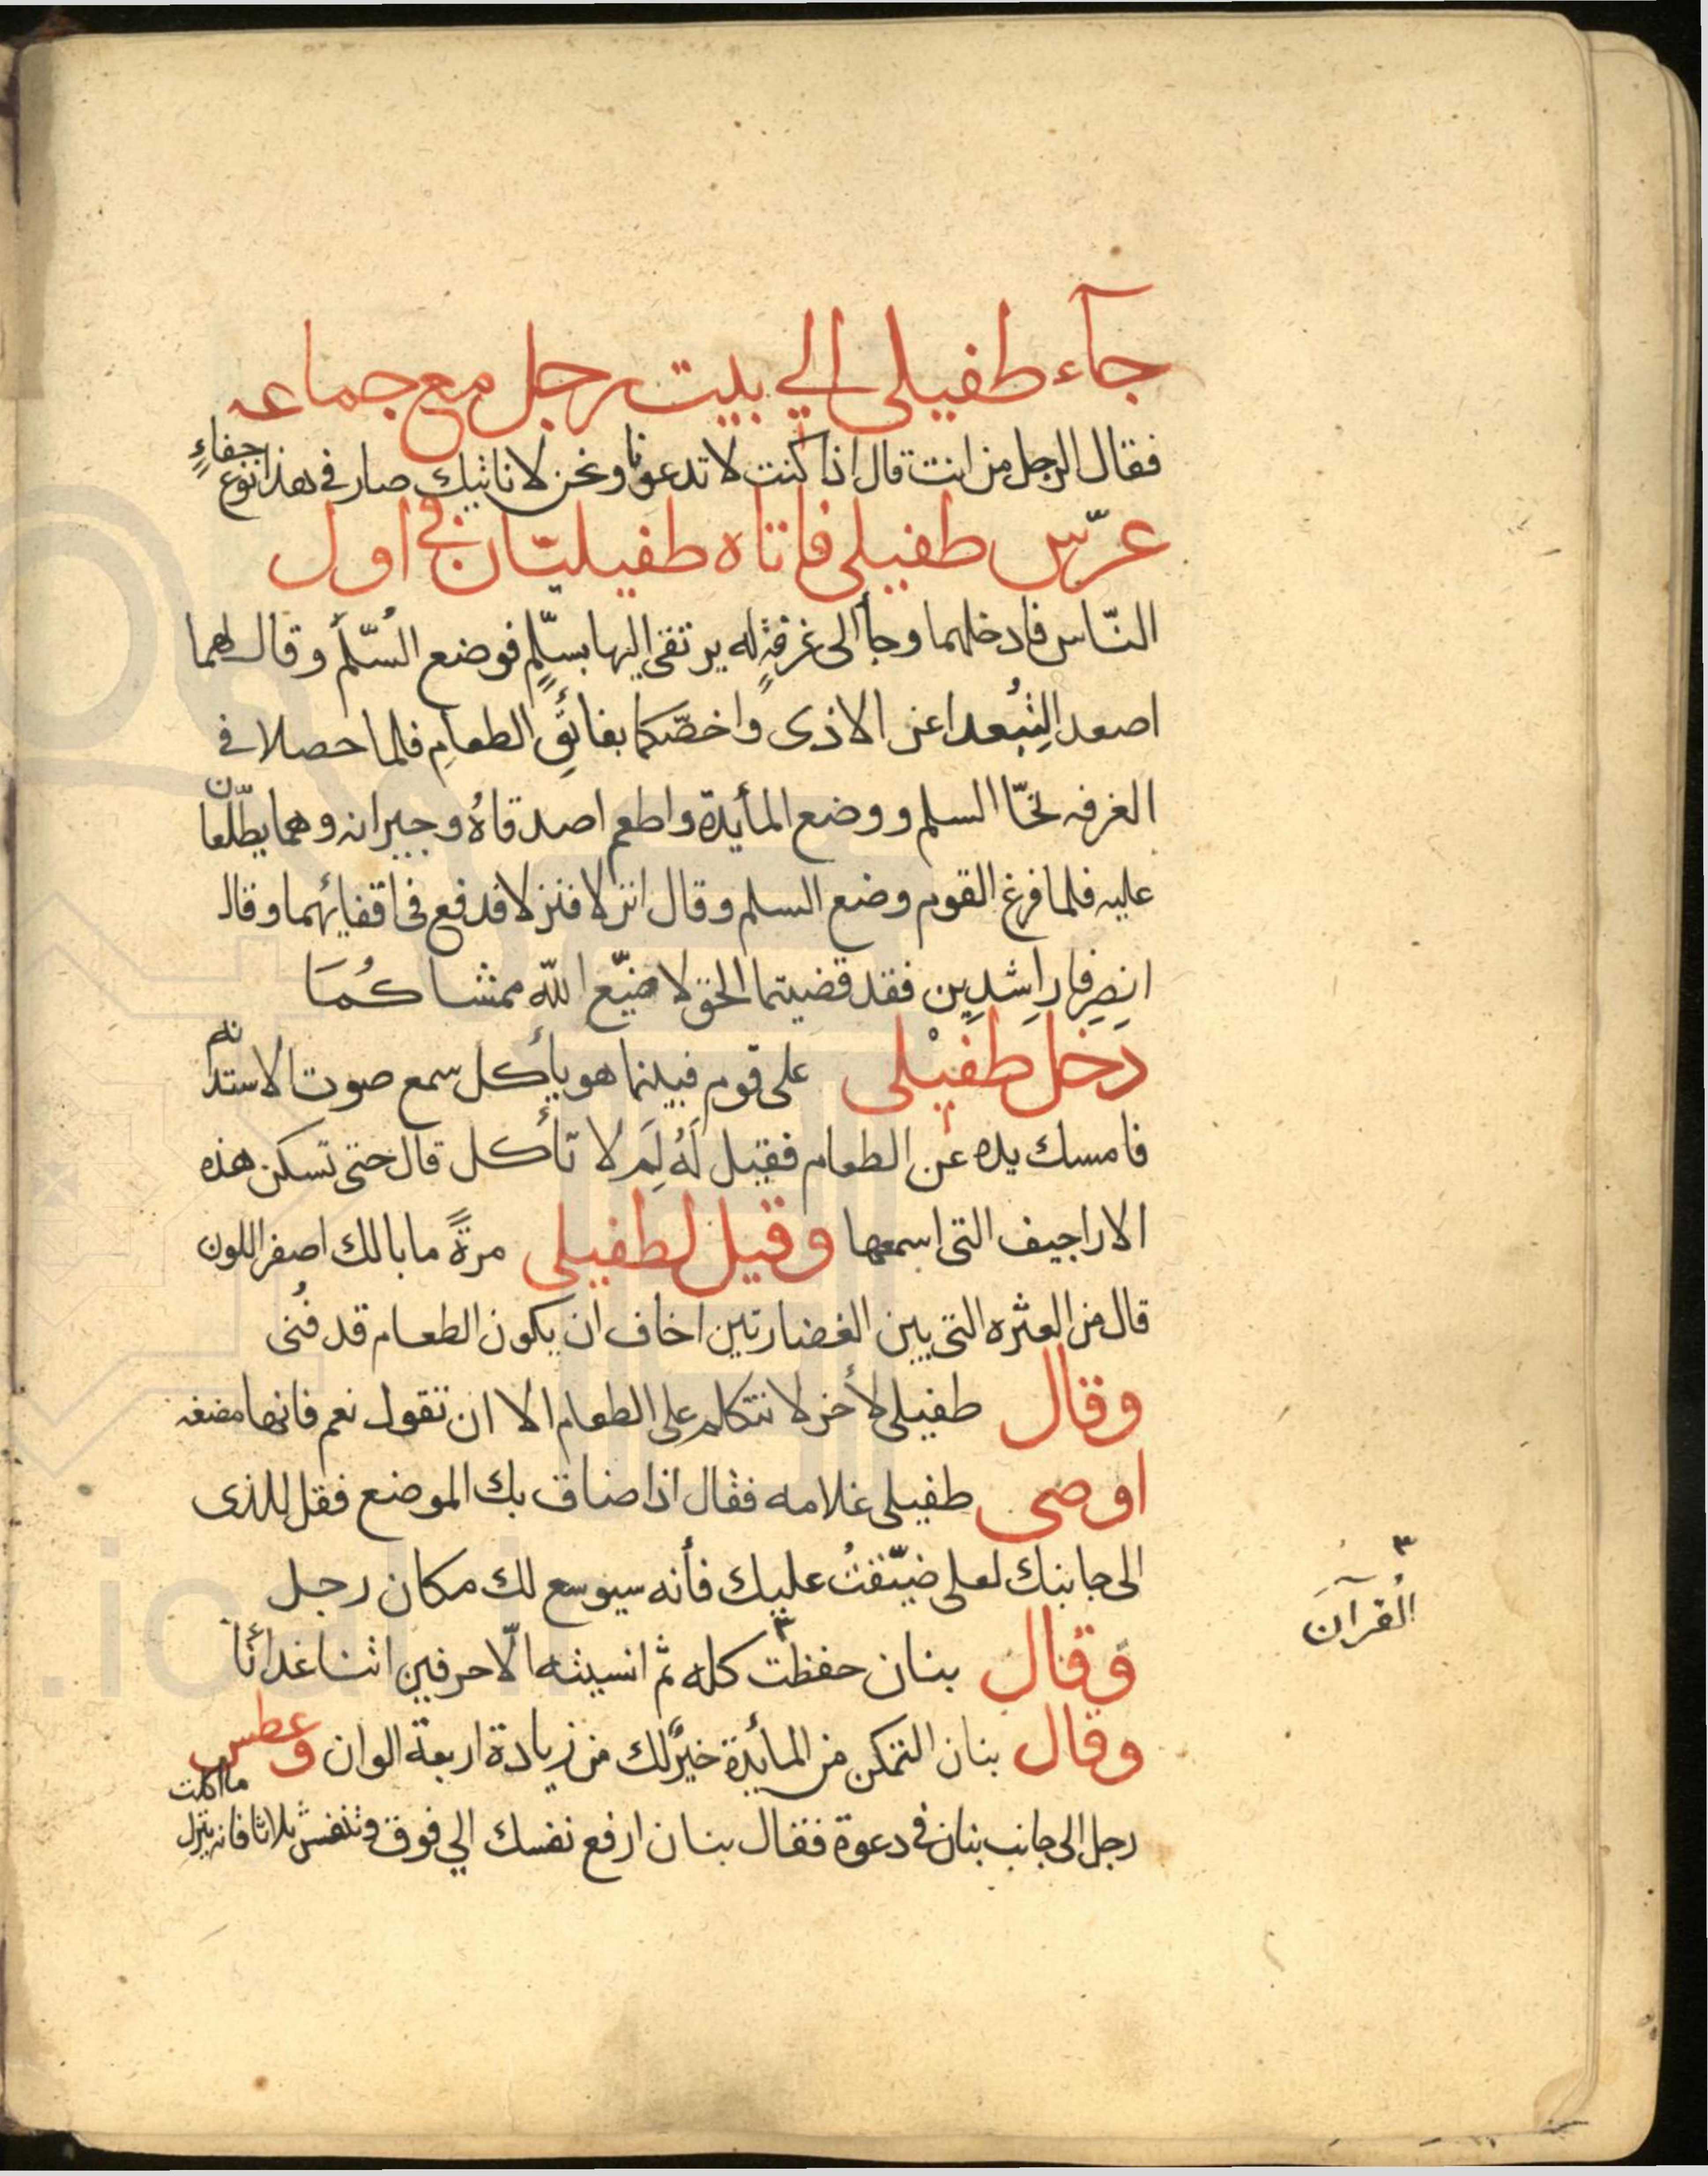 جآء طفيلى الي بيت رجل مع جماعه
فقال الرجل من انت قال اذا كنت لا تدعونا ونحن لا ناتيك صار فى هذا نوع جفاءٍ
عرّس طفيلى فاتاه طفيليّان في اول
النّاس فادخلهما وجأ الى غرفةٍ له يرتقى اليها بسلّمٍ فوضع السُلّم وقال لهما
اصعدا لِنُبعدا عن الاذى واخصّكما بفائقِ الطعامِ فلما حصلا فى
الغرفه نحّا السلم ووضع المأيدة واطعم اصدقاهُ وجيرانه وهما يطّلعان
عليه فلما فرغ القوم وضع السلم وقال انزلا فنزلا فدفع فى اقفائهما وقال
انصِرفا راشدِين فقد قضيتما الحق لا ضيّع الله ممشاكُمَا
دخل طفيْلى على قوم فبينما هو يأكل سمع صوت الاستدانه
فامسك يده عن الطعام فقيل لَهُ لِمَ لا تأكل قال حتى تسكن هذه
الاراجيف التى اسمعها وقيل لطفيلى مرةً ما بالك اصفر اللون
قال من العثره التى بين الغضارتين اخاف ان يكون الطعام قد فُنى
وقال طفيلى لأخر لا تتكلم على الطعام الا ان تقول نعم فانها مضغه
اوصى طفيلى غلامه فقال اذا ضاق بك الموضع فقل للذى
الى جانبك لعلى ضيّقتُ عليك فأنه سيوسع لك مكان رجل
وَقال بنان حفظت ٣ كله ثم انسيته الّا حرفين اتنا غدائنا
٣ القُرآن
وقال بنان التمكن من المأيدة خيرٌ لك من زيادة اربعة الوان وعطس
رجل الى جانب بنان فى دعوة فقال بنان ارفع نفسك الي فوق وتنفس ثلاثا فانه ينزل ما اكلت